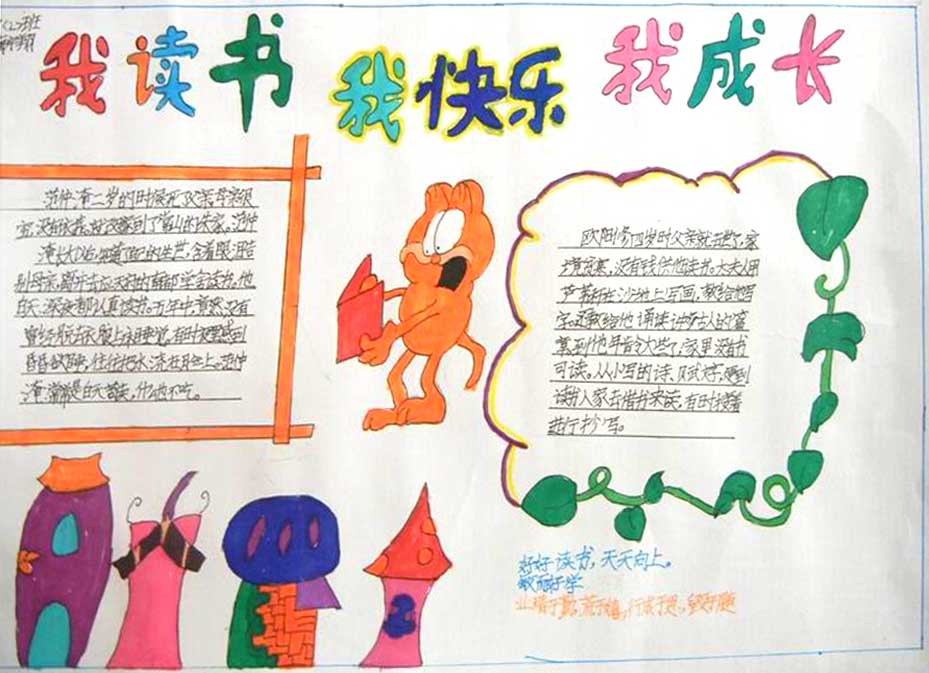 (2)班
我读书 我快乐 我成长
范仲淹二岁的时候死了父亲母亲很
穷,没有依靠,就改嫁到了常山的朱家。范仲
淹长大后,知道了自己的生世,含着眼泪告
别母亲,离开去应天府的南都学舍读书。他
白天、深夜都认真读书。五年中,竟然没有
曾经脱去衣服上床睡觉,有时夜里感到
昏昏欲睡,往往把水浇在脸上。范仲
淹常常是白天苦读,什么也不吃。
欧阳修四岁时父亲就去世了,家
境贫寒,没有钱供他读书。太夫人用
芦苇秆在沙地上写画,教给他写
字。还教给他诵读许多古人的篇
章。到他年龄大些了,家里没有书
可读。从小写的诗、赋文字,
读书人家去借书来读,有时接着
进行抄写。
好好读书,天天向上。
敏而好学
业精于勤,荒于嬉,行成于思,毁于随